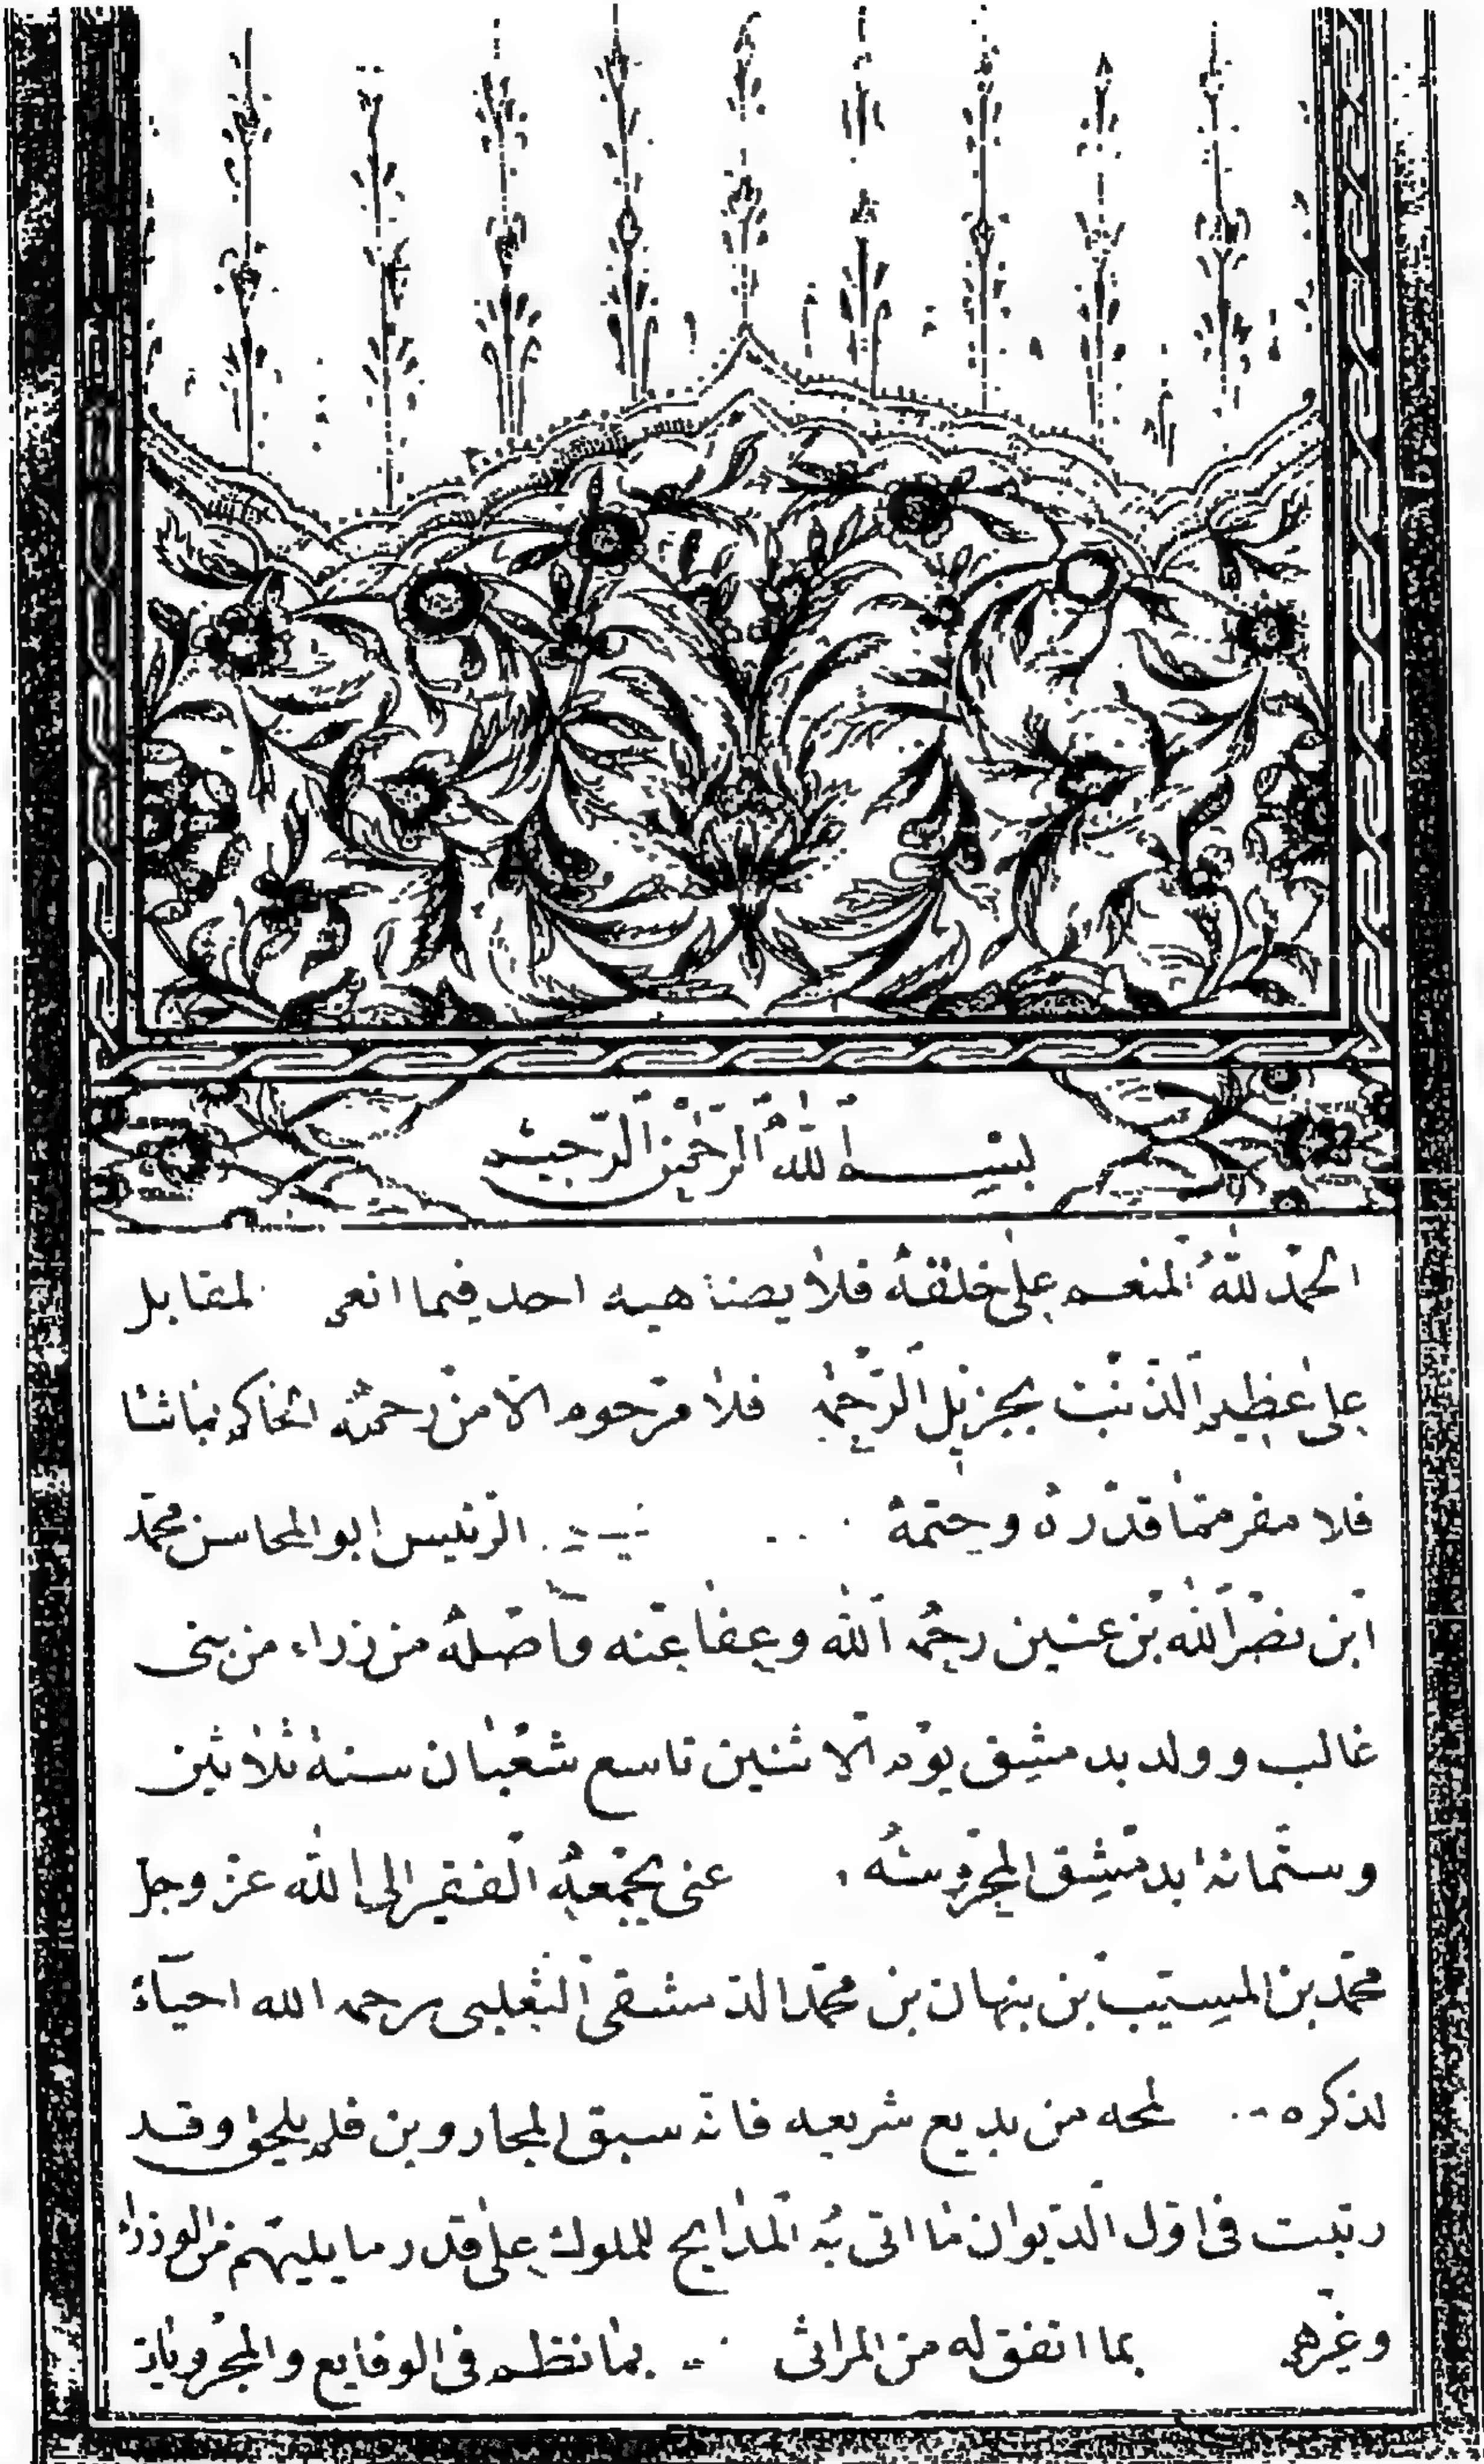 بسم الله الرحمن الرحيم
الحمد لله المنعم على خلقه فلا يضاهيه احد فيما انعم لمقابل
على عظيم الذنب بجزيل الرحمة فلا مرحوم الا من رحمته الحاكم بماشا
فلا مفر مما قدره وحتمه الرئيس ابو المحاسن محمد
ابن نصر الله بن عنين رحمه الله وعفا عنه واصله من زراء من بنى
غالب وولد بدمشق يوم الاثنين تاسع شعبان سنة ثلاثين
وستمائة بدمشق المحروسه عنى بجمعه الفقير الى الله عز وجل
محمد بن المسيب بن بنهان بن محمد الدمشقى الثعلبى رحمه الله احياء
لذكره لمحه من بديع شريعه فانه سبق المجاروين فلم يلحق وقد
رتبت فى اول الديوان ما اتى به المدايح للملوك على قدر مايليهم من الوزراء
وغيرهم بما اتفق له من المراثى بما نظم فى الوقايع والمجرويات